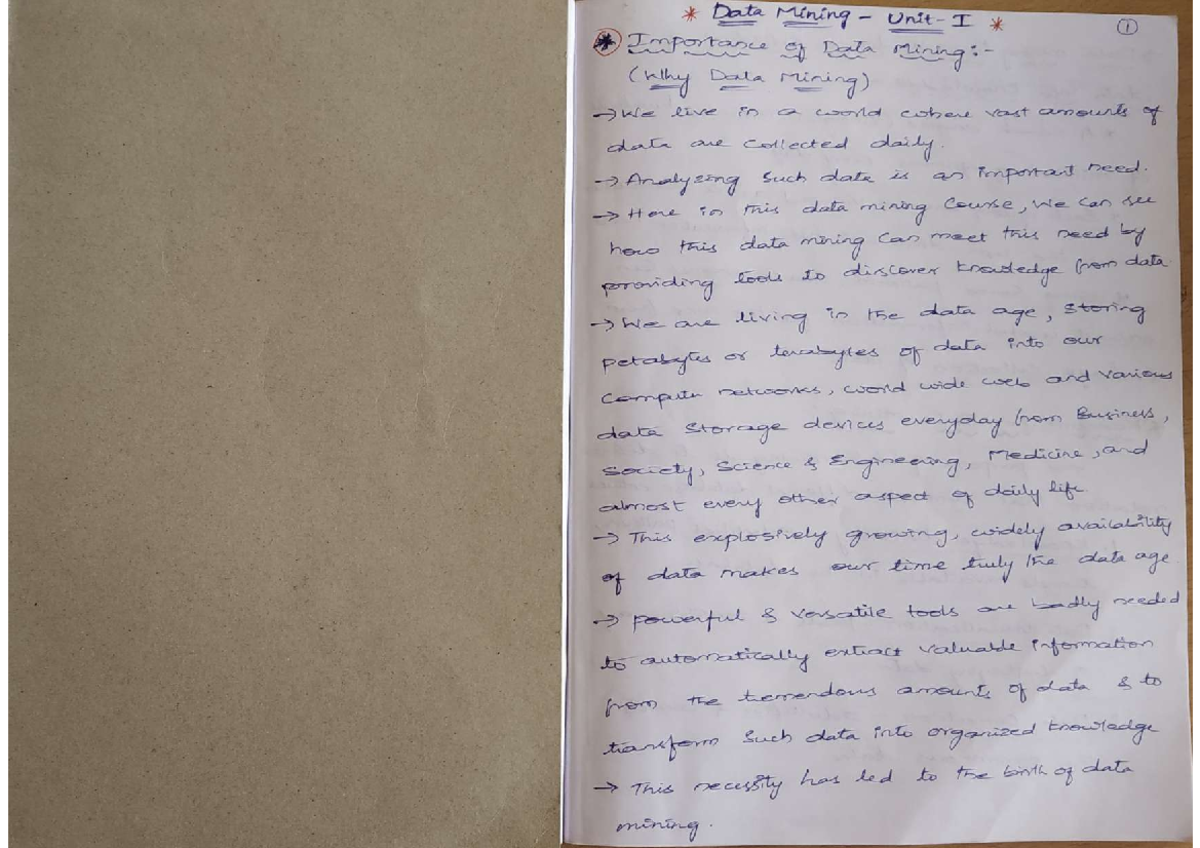 * Data Mining - Unit - I *
1
* Importance of Data Mining:-
(Why Data Mining)
→ We live in a world where vast amounts of
data are collected daily.
→ Analyzing such data is an important need.
→ Here in this data mining course, we can see
how this data mining can meet this need by
providing tools to discover knowledge from data.
→ We are living in the data age, storing
petabytes or terabytes of data into our
computer networks, world wide web and various
data storage devices everyday from Business,
society, Science & Engineering, Medicine, and
almost every other aspect of daily life
→ This explosively growing, widely availability
of data makes our time truly the data age
→ powerful & versatile tools are badly needed
to automatically extract valuable information
from the tremendous amounts of data & to
transform such data into organized knowledge
→ This necessity has led to the birth of data
mining.